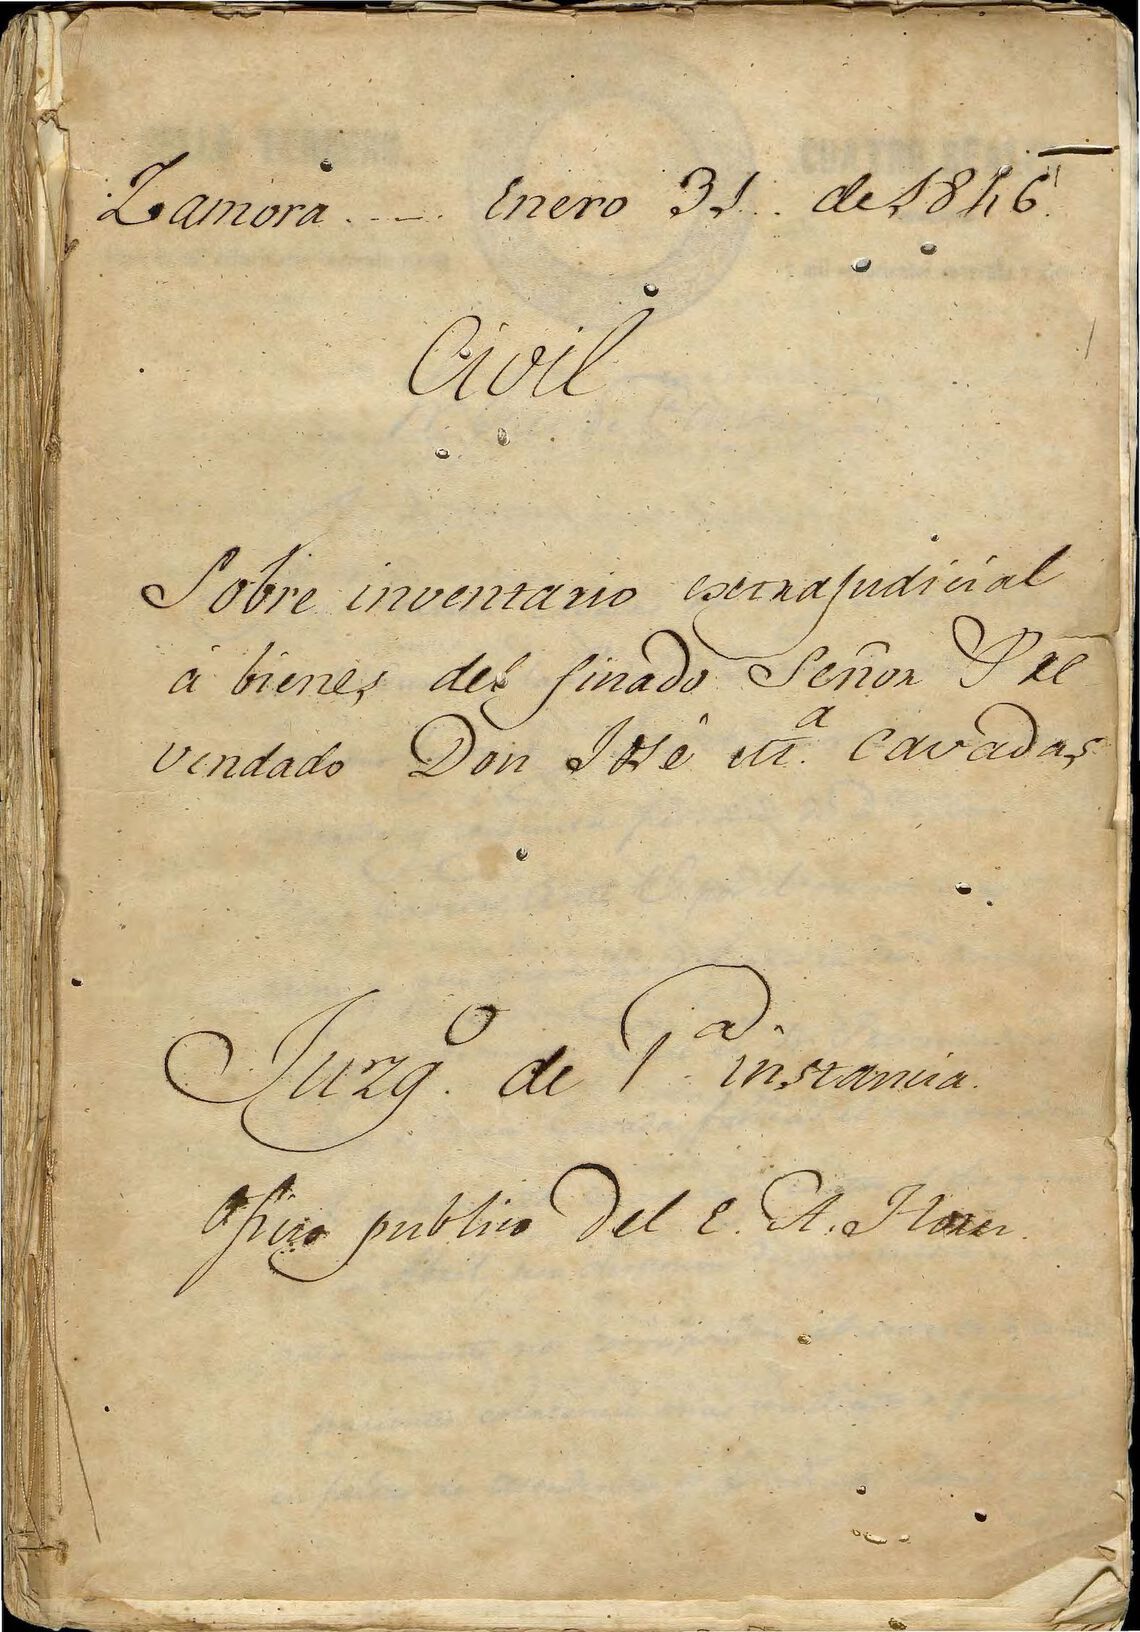 Zamora ---- Enero 31. de 1846.
Civil
Sobre inventario extrajudicial
á bienes del finado Señor Pre
vendado Don José M.ª Cavadas
Juzg.º de 1.ª instancia.
Oficio publico del E. A.